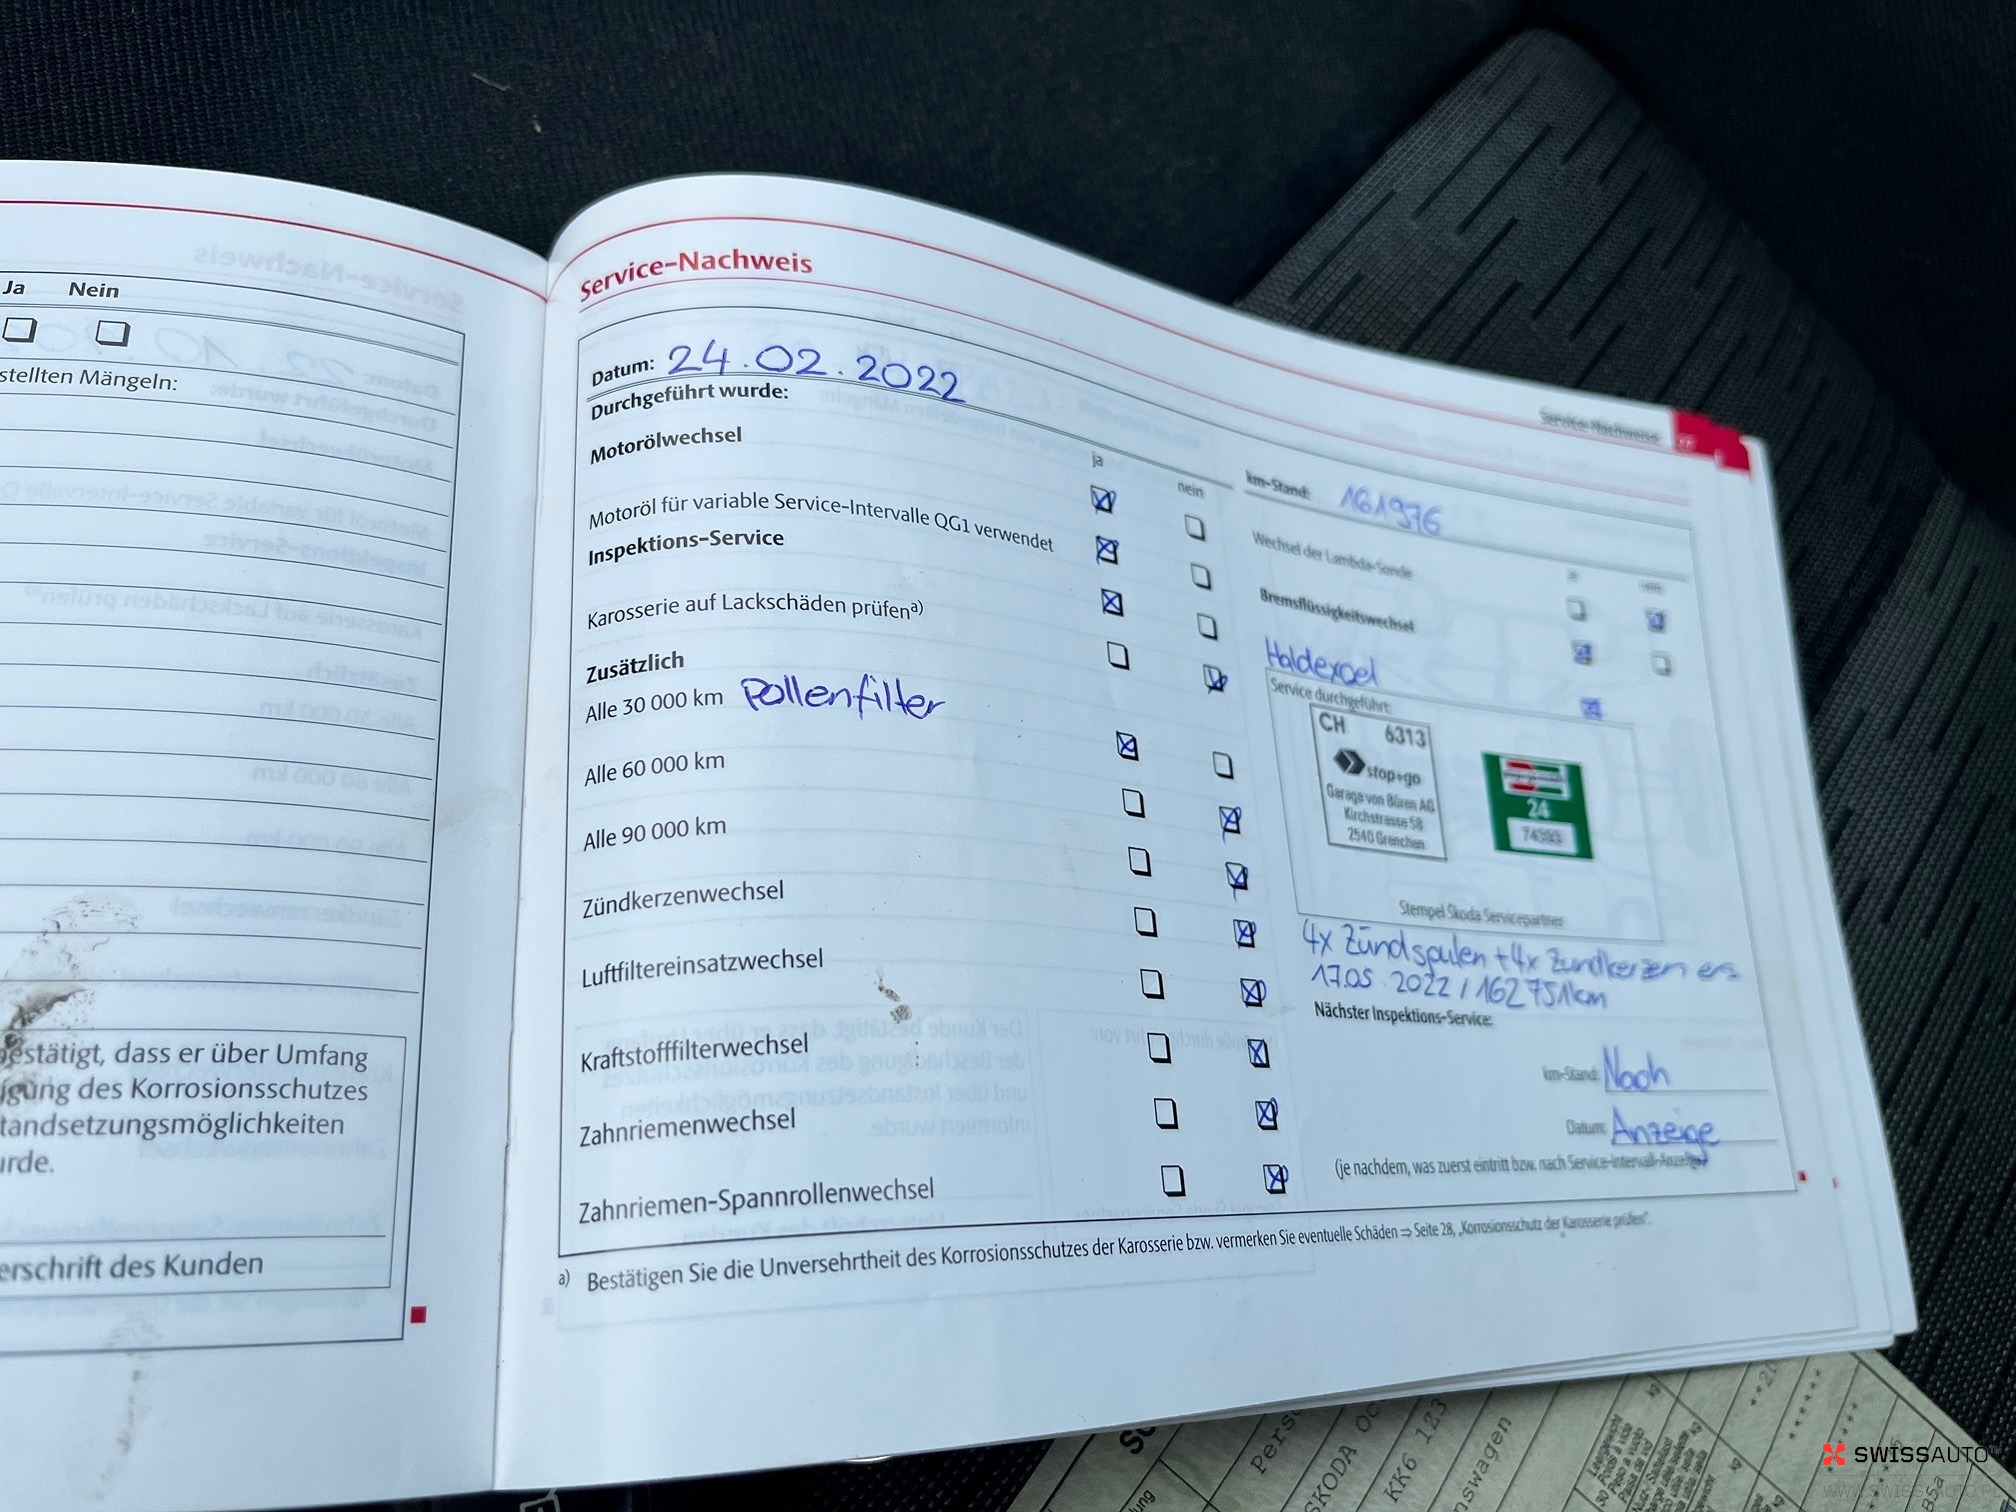 Ja Nein
stellten Mängeln:
estätigt, dass er über Umfang
igung des Korrosionsschutzes
tandsetzungsmöglichkeiten
urde.
erschrift des Kunden
Service-Nachweis
Datum: 24.02.2022
Durchgeführt wurde:
Motorölwechsel
ja nein
Motoröl für variable Service-Intervalle QG1 verwendet
Inspektions-Service
Karosserie auf Lackschäden prüfen a)
Zusätzlich
Alle 30 000 km Pollenfilter
Alle 60 000 km
Alle 90 000 km
Zündkerzenwechsel
Luftfiltereinsatzwechsel
Kraftstofffilterwechsel
Zahnriemenwechsel
Zahnriemen-Spannrollenwechsel
Service-Nachweise
km-Stand: 161976
Wechsel der Lambda-Sonde
Bremsflüssigkeitswechsel
Haldexoel
Service durchgeführt:
CH 6313
stop+go
Garage von Büren AG
Kirchstrasse 58
2540 Grenchen
24
Stempel Škoda Servicepartner
4x Zündspulen + 4x Zündkerzen ers
17.05.2022 / 162751km
Nächster Inspektions-Service:
km-Stand: Nach
Datum: Anzeige
(je nachdem, was zuerst eintritt bzw. nach Service-Intervall-Anzeige)
a) Bestätigen Sie die Unversehrtheit des Korrosionsschutzes der Karosserie bzw. vermerken Sie eventuelle Schäden ⇒ Seite 28, „Korrosionsschutz der Karosserie prüfen".
SKODA Oc
KK6 123
nswagen
SWISSAUTO